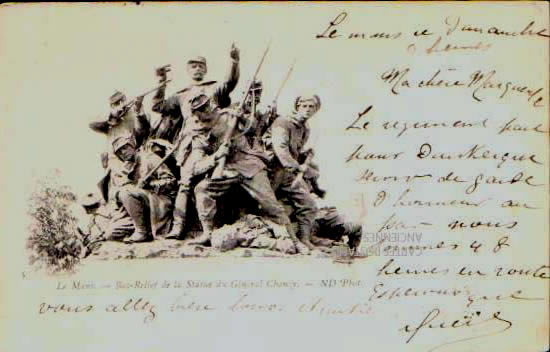 Le mans ce Dimanche
9 heures
Ma chère Marguerite
Le regiment part
pour Dunkerque
de garde
d'honneur au
pas nous
sommes 
heures en route
Esperons que
vous allez bien
CARTES
ANCIENNES
Le Mans. — Bas-Relief de la Statue du Général Chanzy. — ND Phot.